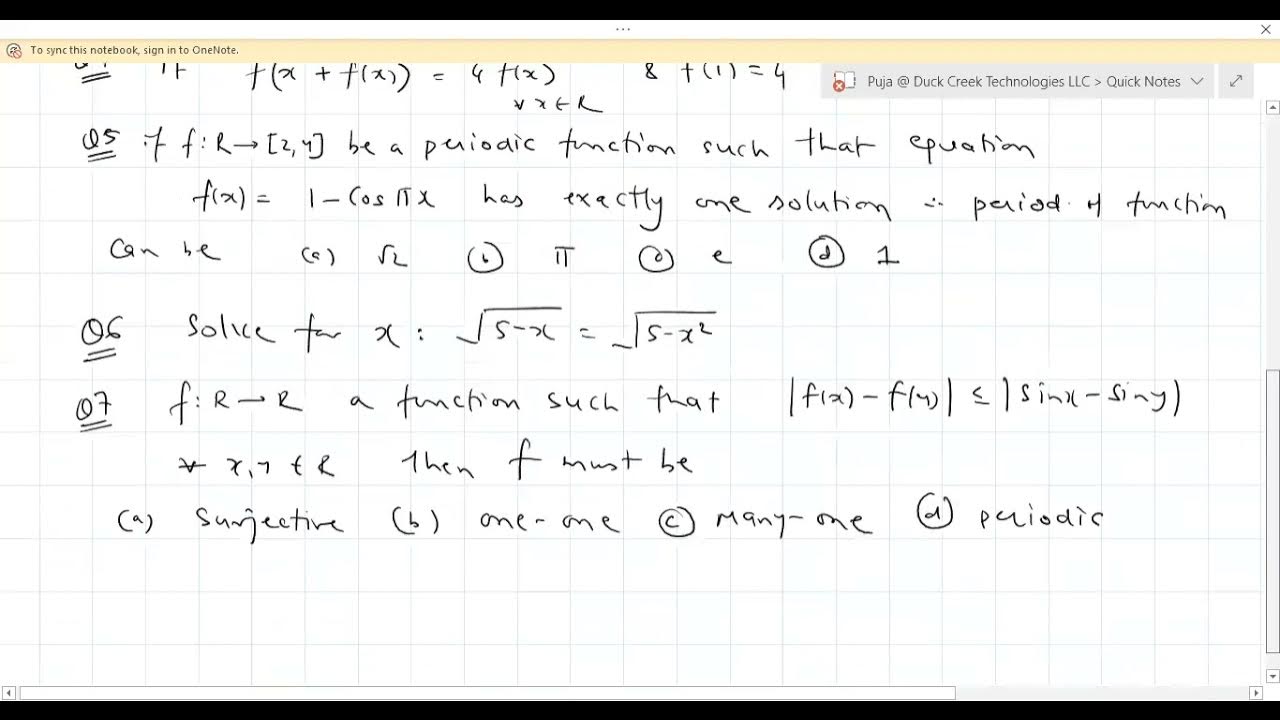 ...
To sync this notebook, sign in to OneNote.
f(x + f(x)) = 4 f(x) & f(1) = 4
Puja @ Duck Creek Technologies LLC > Quick Notes
∀ x ∈ R
Q5 if f: R → [2,4] be a periodic function such that equation
f(x) = 1 - Cos πx has exactly one solution ∴ period of function
Can be (a) √2 (b) π (c) e (d) 1
Q6 Solve for x : √(5-x) = √(5-x²)
Q7 f: R → R a function such that |f(x) - f(y)| ≤ |sinx - siny|
∀ x,y ∈ R then f must be
(a) surjective (b) one-one (c) many-one (d) periodic